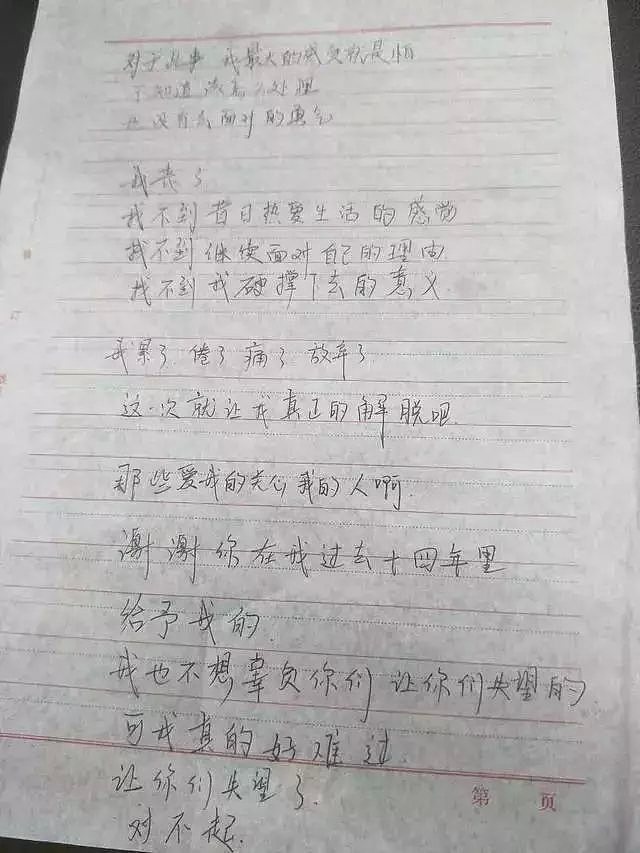 对于此事 我最大的感受就是怕
不知道该怎么处理
也没有去面对的勇气
我丧了
找不到昔日热爱生活的感觉
找不到继续面对自己的理由
找不到我硬撑下去的意义
我累了 倦了 痛了 放弃了
这一次就让我真正的解脱吧.
那些爱我的关心我的人啊.
谢谢你在我过去十四年里
给予我的.
我也不想辜负你们 让你们失望的
可我真的好难过.
让你们失望了.
对不起.
第 页